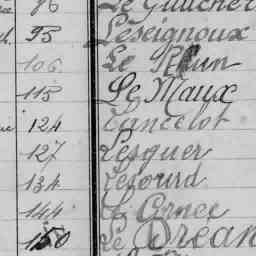 86 Le Guucher
95 Leseignoux
106 Le Rhun
115 Le Maux
124 Lancelot
127 Lesquer
134 Lefourd
144 Le Cornec
150 Le Dréan